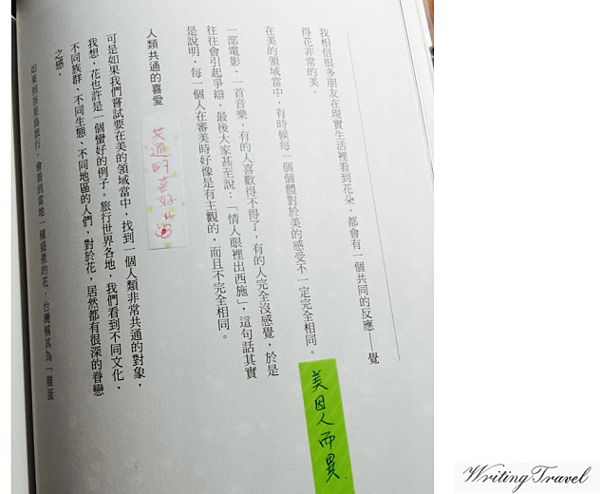 我相信很多朋友在現實生活裡看到花朵，都會有一個共同的反應——覺
得花非常的美。
在美的領域當中，有時候每一個個體對於美的感受不一定完全相同。
一部電影、一首音樂，有的人喜歡得不得了，有的人完全沒感覺，於是
往往會引起爭辯，最後大家甚至說：「情人眼裡出西施」，這句話其實
是說明，每一個人在審美時好像是有主觀的，而且不完全相同。
美因人而異
人類共通的喜愛
共通的喜好
可是如果我們嘗試要在美的領域當中，找到一個人類非常共通的對象，
我想，花也許是一個蠻好的例子。旅行世界各地，我們看到不同文化、
不同族群、不同生態、不同地區的人們，對於花，居然都有很深的眷戀
之感。
如果到峇里島旅行，會看到當地一種盛產的花，台灣稱其為「雞蛋
WritingTravel